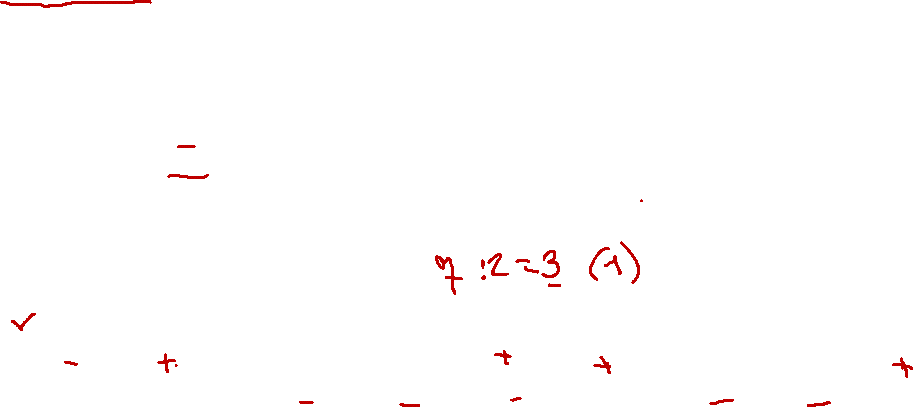 =
7 : 2 = 3 (1)
✓
- + + + +
- - - - -